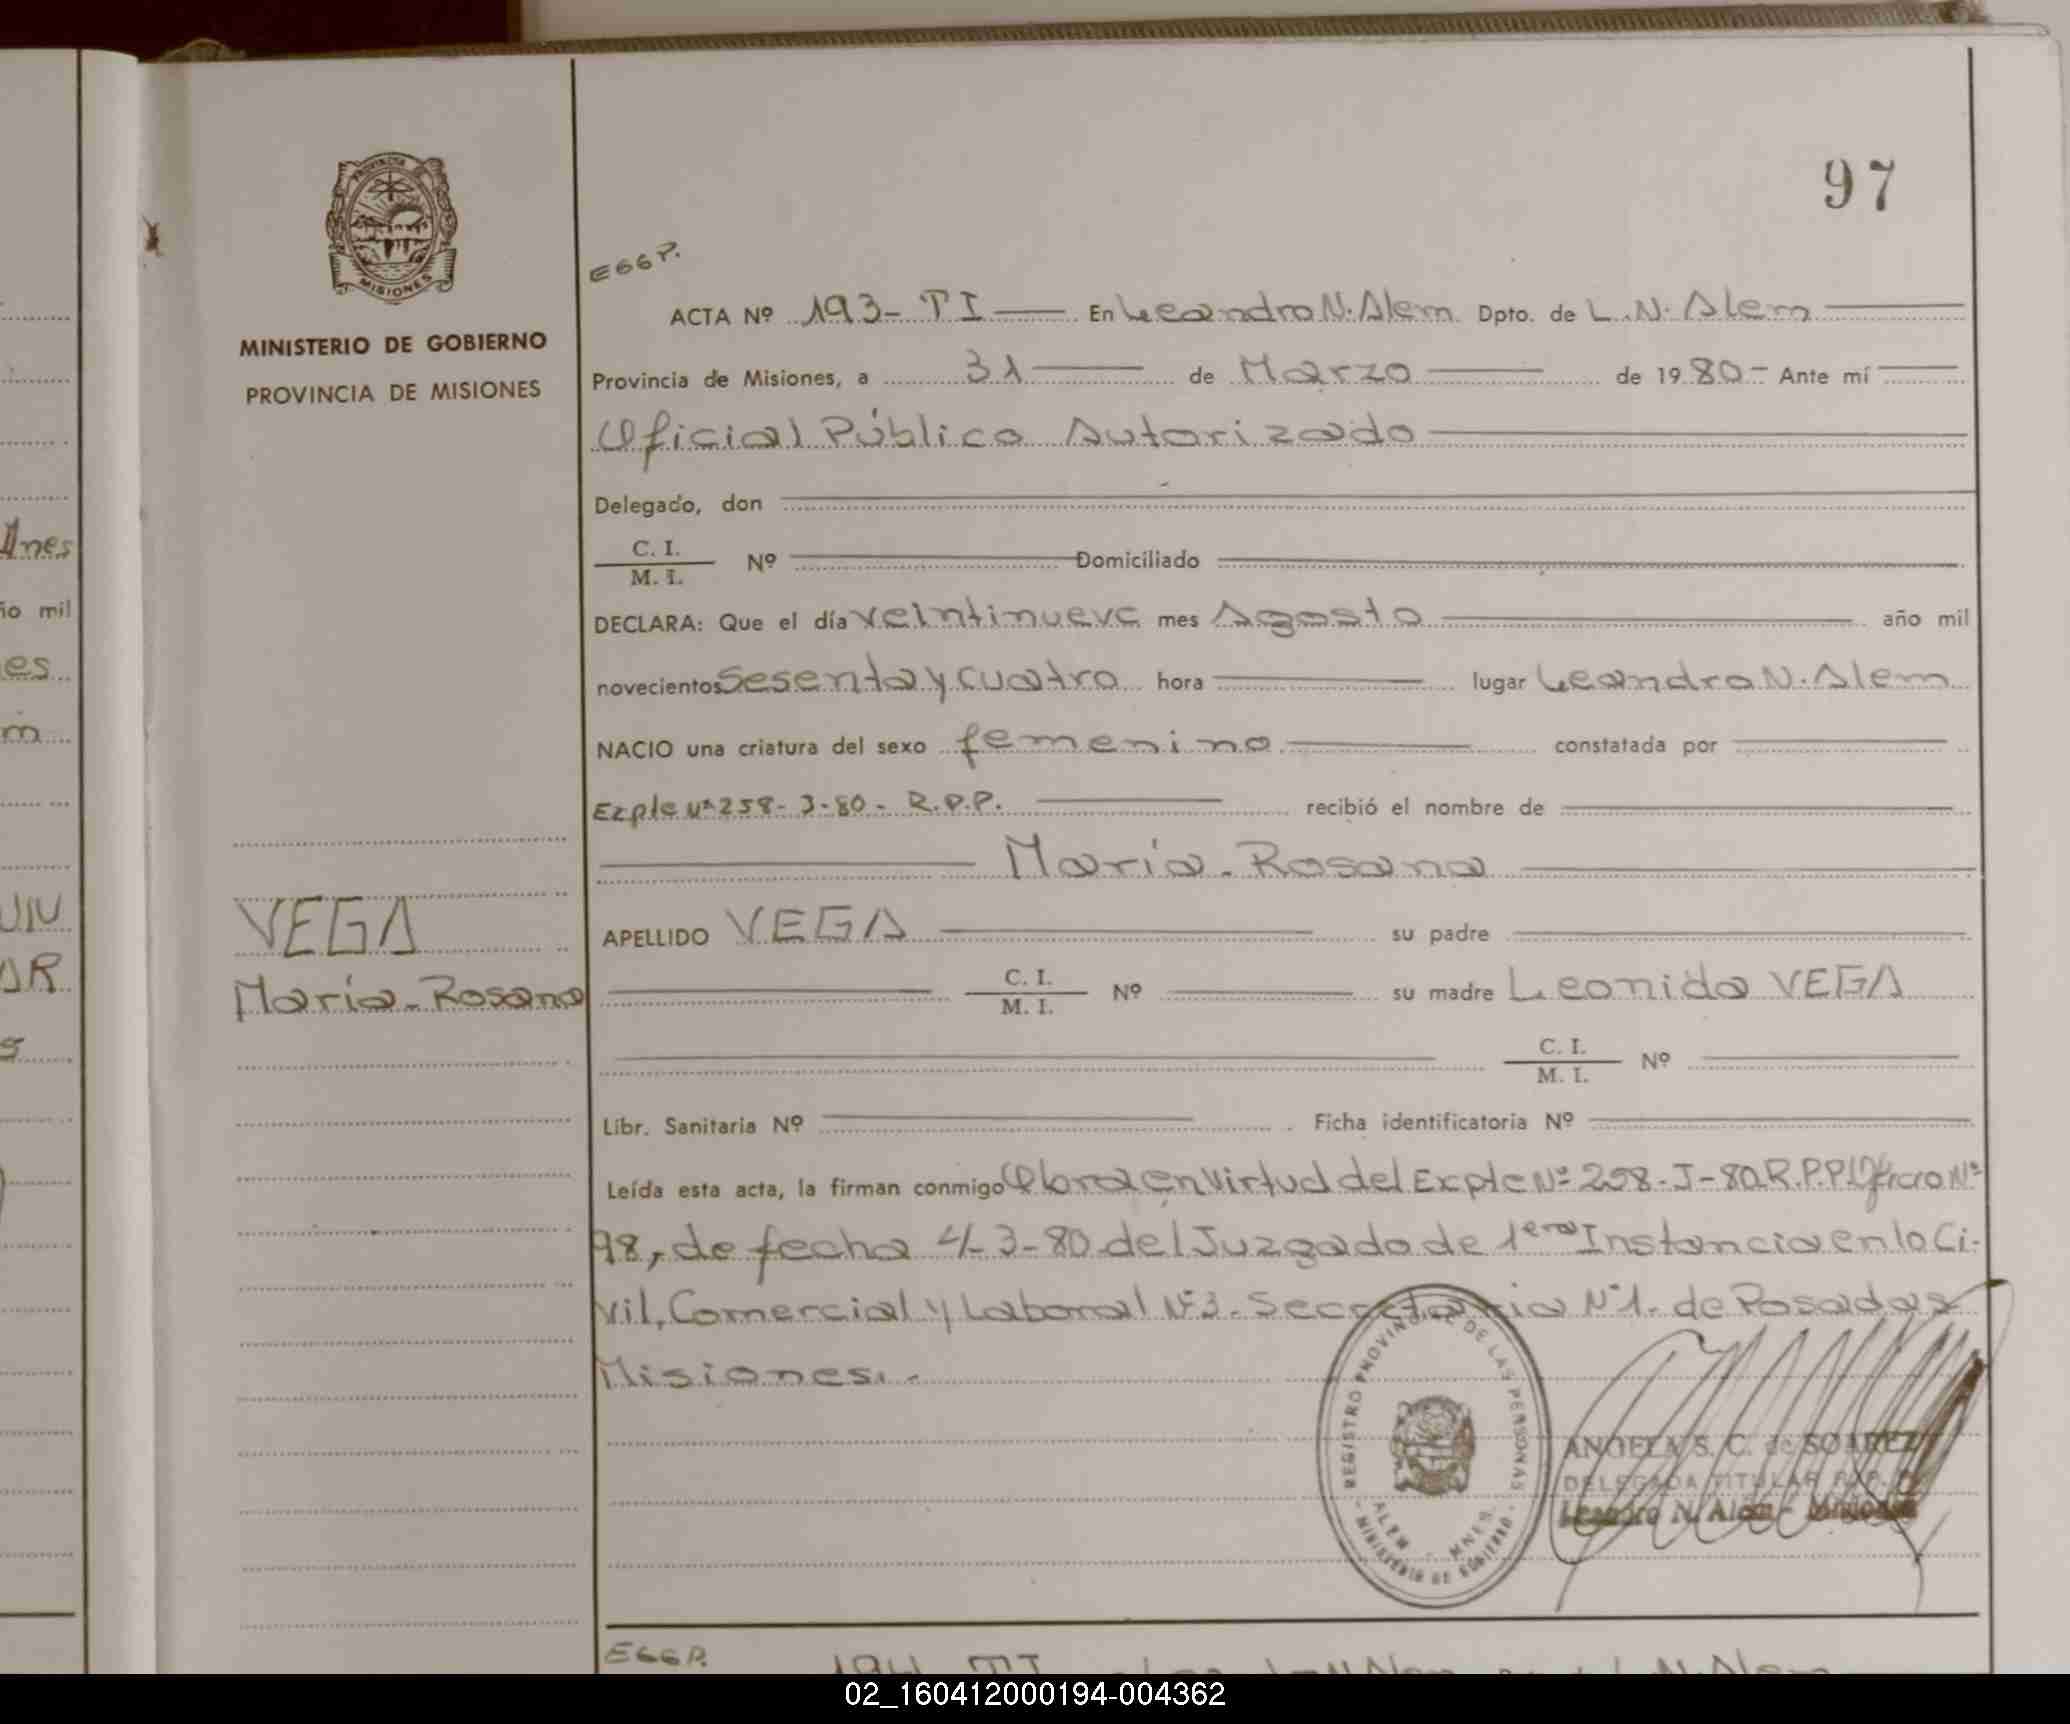 97
PROVINCIA
MISIONES
MINISTERIO DE GOBIERNO
PROVINCIA DE MISIONES
EGGP.
ACTA Nº 193- TI En Leandro N. Alem Dpto. de L. N. Alem
Provincia de Misiones, a 31 de Marzo de 19 80- Ante mí
Oficial Público Autorizado
Delegado, don
C. I.
M. I. Nº Domiciliado
DECLARA: Que el día veintinueve mes Agosto año mil
novecientos Sesenta y cuatro hora lugar Leandro N. Alem
NACIO una criatura del sexo femenino constatada por
Exple Nº 258- J-80- R.P.P. recibió el nombre de
María-Rosana
APELLIDO VEGA su padre
C. I.
M. I. Nº su madre Leonida VEGA
C. I.
M. I. Nº
Libr. Sanitaria Nº Ficha identificatoria Nº
Leída esta acta, la firman conmigo Obra en Virtud del Exple Nº 258-J-80.R.P.P. Oficio Nº
98, de fecha 4-3-80 del Juzgado de 1era Instancia en lo Ci-
vil, Comercial y Laboral Nº3- Secretaria Nº1- de Posadas
Misiones.-
VEGA
María-Rosana
REGISTRO PROVINCIAL DE LAS PERSONAS
ALEM - MNES.
MINISTERIO DE GOBIERNO
ANGELA S. C. de SOAREZ
DELEGADA TITULAR R.P.P.
Leandro N. Alem - Misiones
EGGP.
194 TI
Ines
ño mil
es
m
UIU
AR
s
02_160412000194-004362